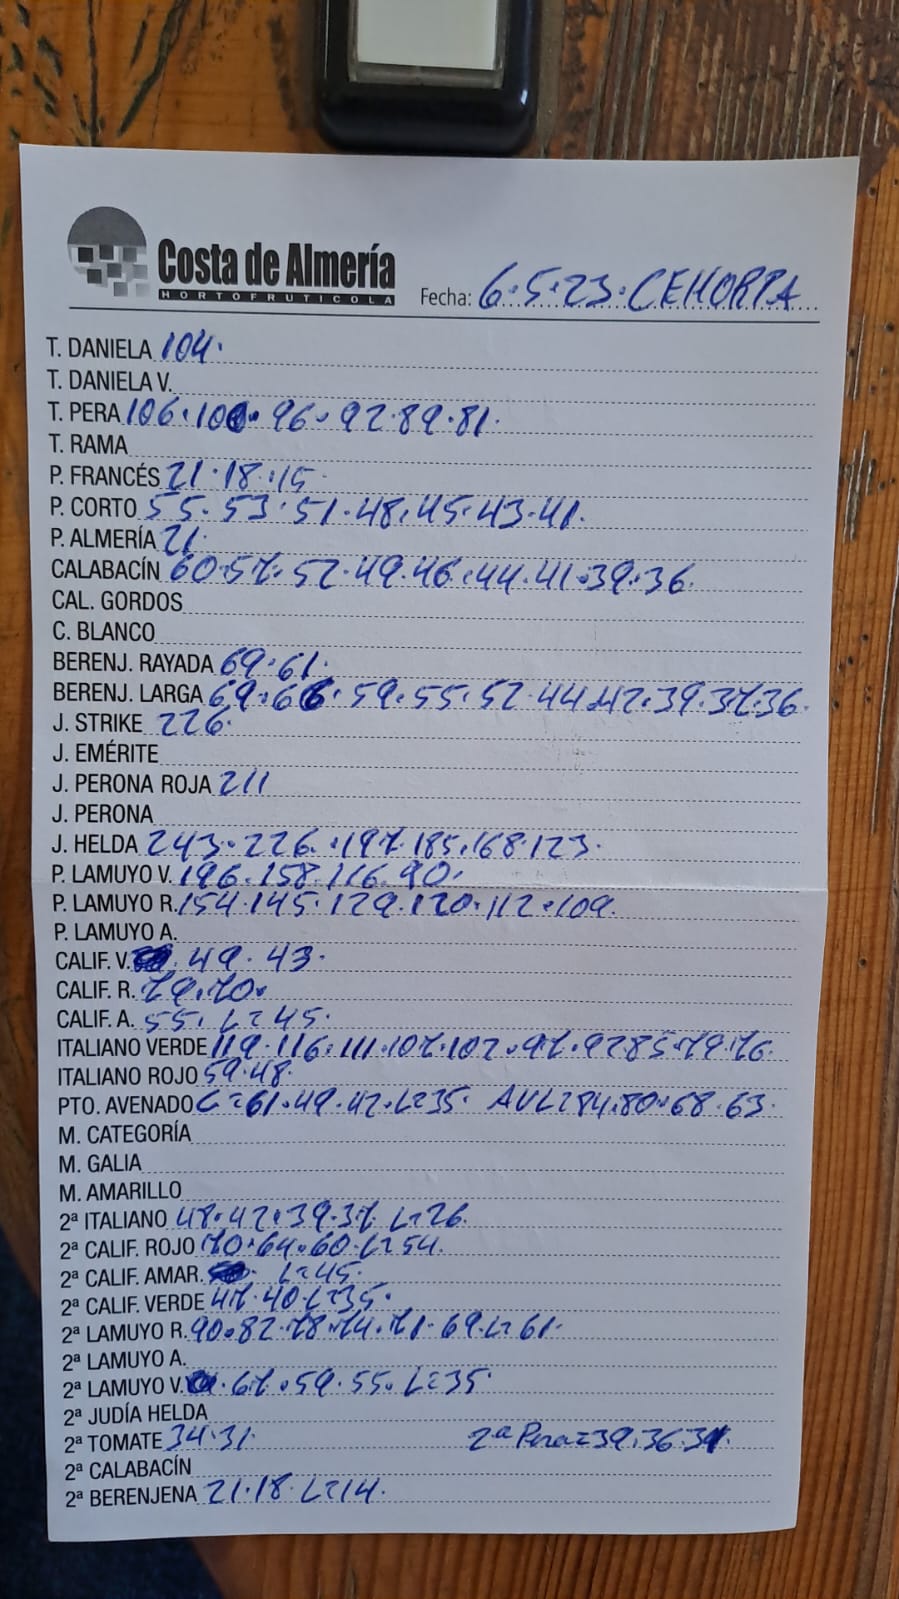 Costa de Almería
HORTOFRUTICOLA
Fecha: 6.5.23. CEHORPA
T. DANIELA 104.
T. DANIELA V.
T. PERA 106.100.96.92.89.81.
T. RAMA
P. FRANCÉS 21.18.15
P. CORTO 55.53.51.48.45.43.41.
P. ALMERÍA 21.
CALABACÍN 60.57.52.49.46.44.41.39.36.
CAL. GORDOS
C. BLANCO
BERENJ. RAYADA 69.61.
BERENJ. LARGA 69.66.59.55.52.44.42.39.37.36.
J. STRIKE 226.
J. EMÉRITE
J. PERONA ROJA 211
J. PERONA
J. HELDA 243.226.197.185.168.123.
P. LAMUYO V. 196.158.116.90.
P. LAMUYO R. 154.145.129.120.112.109.
P. LAMUYO A.
CALIF. V. 49.43.
CALIF. R. 79.70.
CALIF. A. 55. L=45.
ITALIANO VERDE 119.116.111.107.102.97.92 85.79.76.
ITALIANO ROJO 59.48.
PTO. AVENADO C=61.49.42.L=35. AVL=84.80.68.63.
M. CATEGORÍA
M. GALIA
M. AMARILLO
2ª ITALIANO 48.42.39.37. L=26.
2ª CALIF. ROJO 70.64.60.L=54.
2ª CALIF. AMAR. L=45.
2ª CALIF. VERDE 47.40.L=35.
2ª LAMUYO R. 90.82.78.74.71.69.L=61.
2ª LAMUYO A.
2ª LAMUYO V. 67.59.55.L=35.
2ª JUDÍA HELDA
2ª TOMATE 34.31. 2ª Pera=39.36.31.
2ª CALABACÍN
2ª BERENJENA 21.18.L=14.